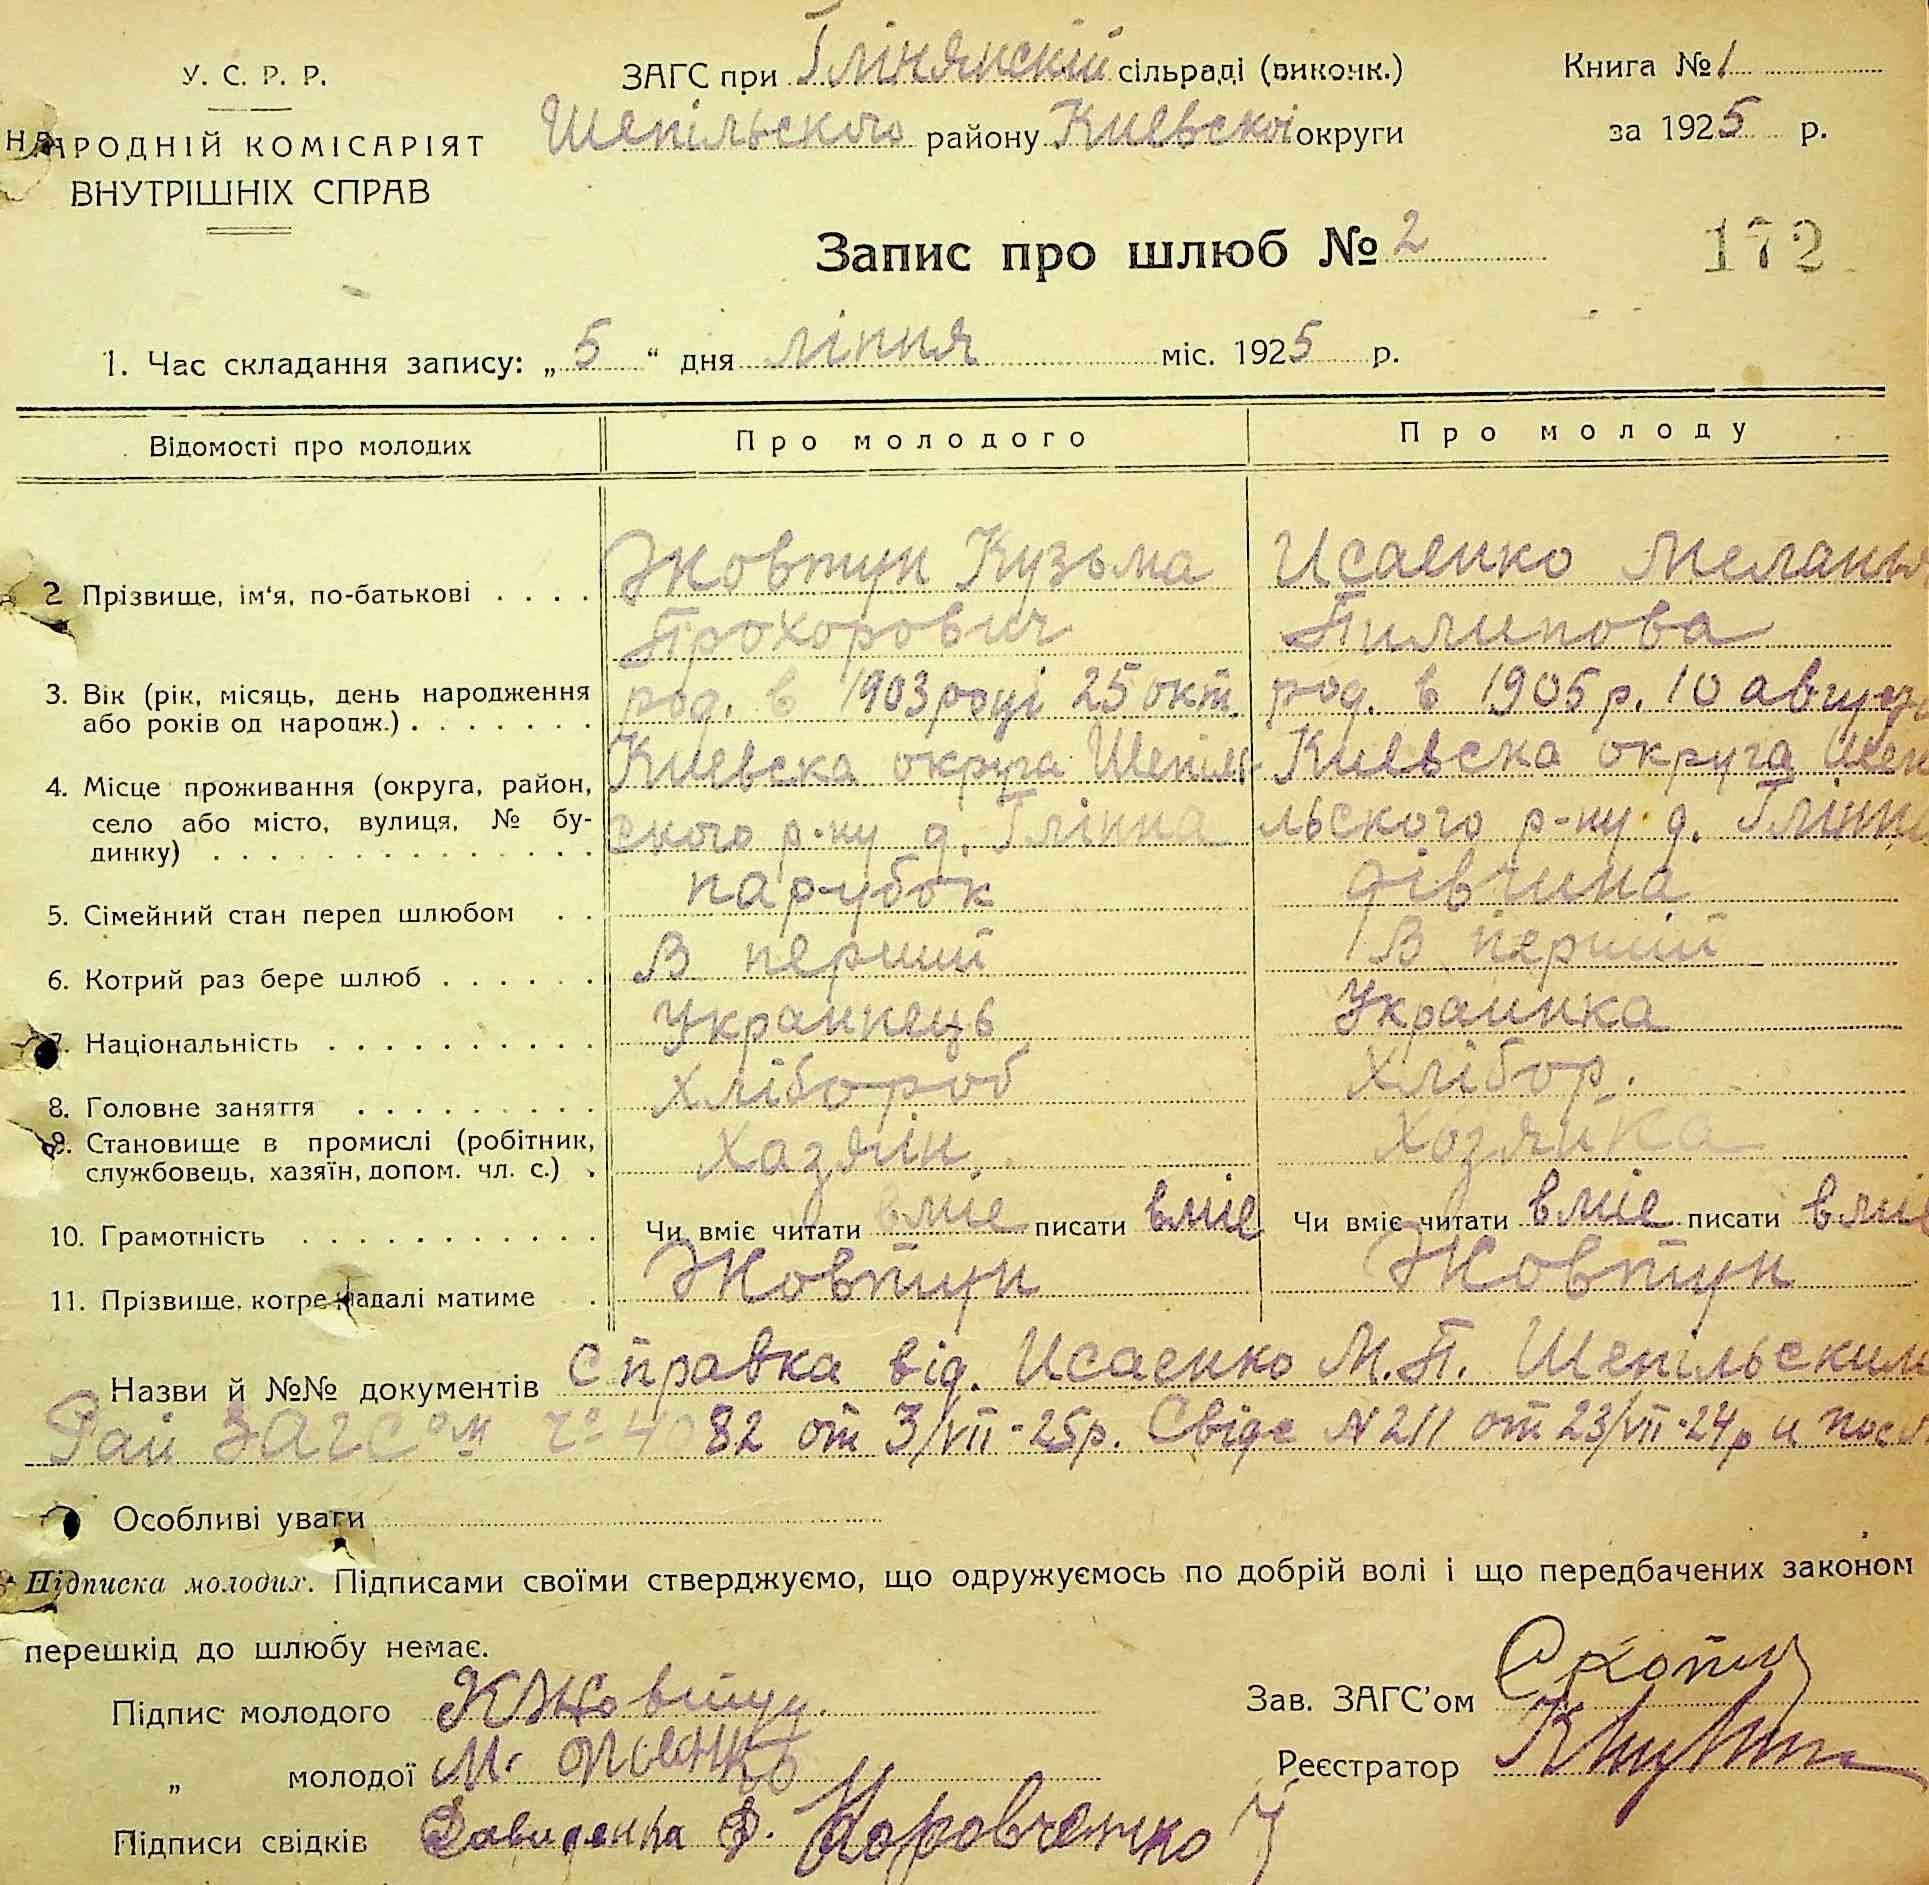 У. С. Р. Р.
НАРОДНІЙ КОМІСАРІЯТ
ВНУТРІШНІХ СПРАВ
ЗАГС при Глінянскій сільраді (виконк.)
Шепільского району Киевскоі округи
Книга № 1
за 1925 р.
Запис про шлюб № 2
172
1. Час складання запису: „ 5 “ дня ліпня міс. 1925 р.
Відомості про молодих Про молодого Про молоду
2 Прізвище, ім'я, по-батькові . . . . Жовтун Кузьма Исаенко Мелания
Прохорович Пилипова
3. Вік (рік, місяць, день народження род. в 1903 році 25 окт. род. в 1905 р. 10 август
або років од народж.) . . . . . . .
4. Місце проживання (округа, район, Киевска округа Шепіль- Киевска округа Шепі
село або місто, вулиця, № бу- ского р-ну д. Глінна льского р-ну д. Глінна
динку) . . . . . . . . . . . . . .
5. Сімейний стан перед шлюбом . . парубок дівчина
6. Котрий раз бере шлюб . . . . . . В перший В перший
7. Національність . . . . . . . . . . Украинець Украинка
8. Головне заняття . . . . . . . . . хлібороб хлібор.
9. Становище в промислі (робітник, хазяін. хозяйка
службовець, хазяїн, допом. чл. с.) .
10. Грамотність . . . . . . . . . . . . Чи вміє читати вміє писати вміє Чи вміє читати вміє писати вміє
11. Прізвище, котре надалі матиме . Жовтун Жовтун
Назви й №№ документів Справка від. Исаенко М.П. Шепільским
Рай ЗАГСом 4082 от 3/VII-25р. Свіде N 211 от 23/VII-24р и
Особливі уваги
Підписка молодих. Підписами своїми стверджуємо, що одружуємось по добрій волі і що передбачених законом
перешкід до шлюбу немає.
Підпис молодого К Жовтун
„ молодої М.
Підписи свідків Давиденка Ф.
Зав. ЗАГС'ом
Реєстратор